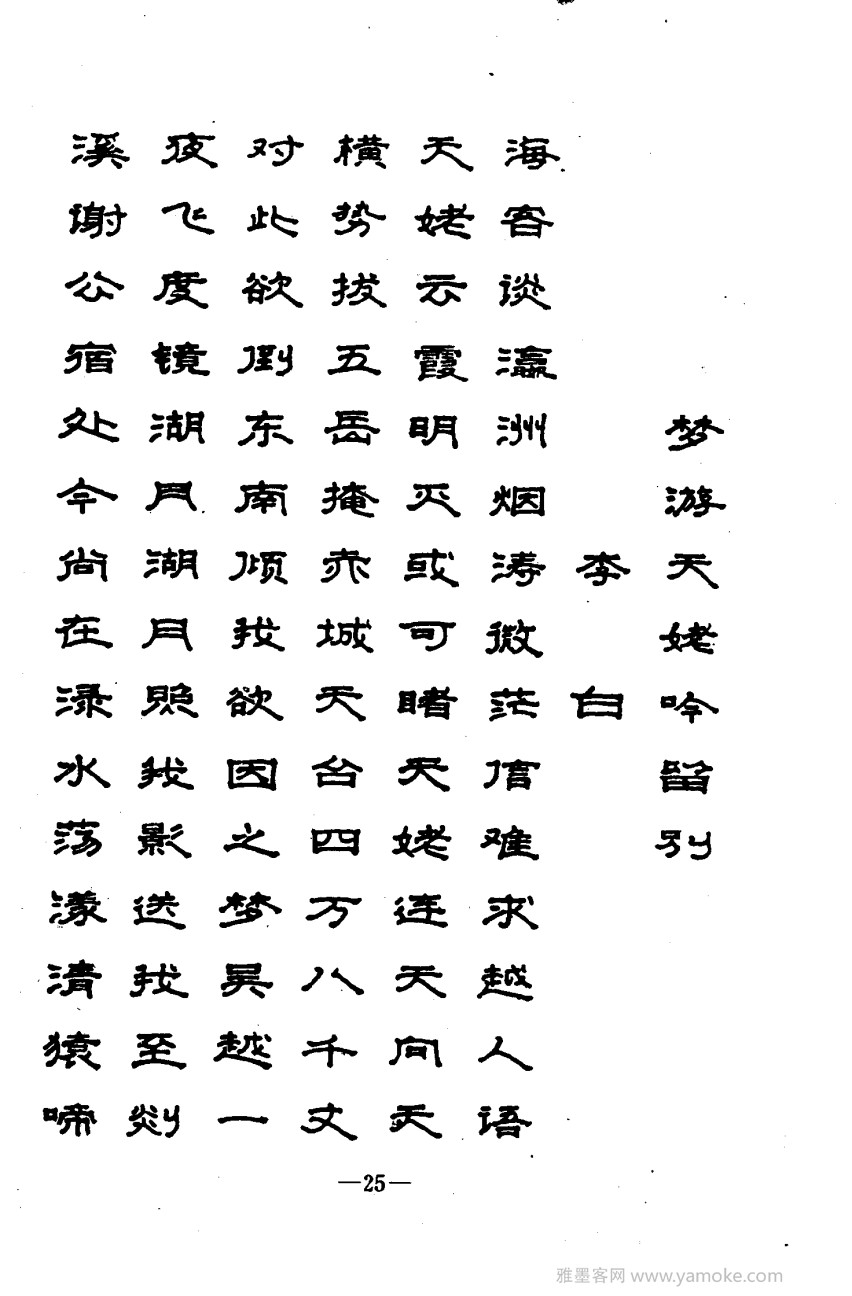 梦游天姥吟留别
李白
海客谈瀛洲烟涛微茫信难求越人语
天姥云霞明灭或可睹天姥连天向天
横势拔五岳掩赤城天台四万八千丈
对此欲倒东南倾我欲因之梦吴越一
夜飞度镜湖月湖月照我影送我至剡
溪谢公宿处今尚在渌水荡漾清猿啼
—25—
雅墨客网 www.yamoke.com